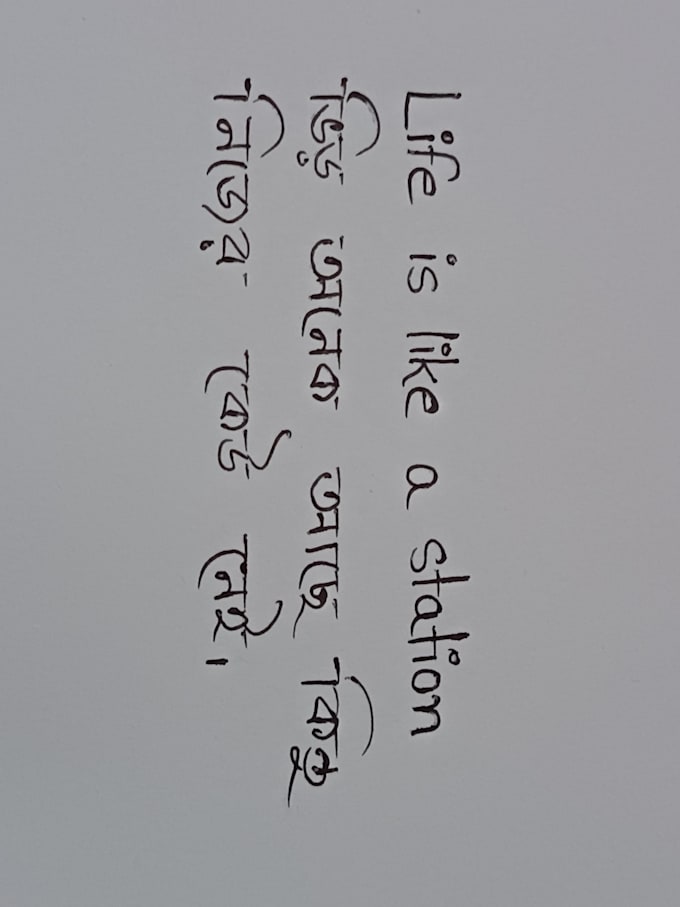 Life is like a station
ভিড় অনেক আছে কিন্তু
নিজের কেউ নেই।